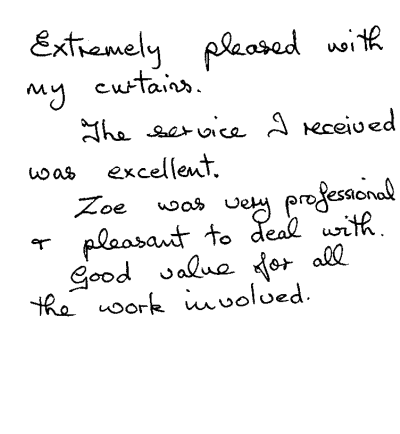 Extremely pleased with
my curtains.
The service I received
was excellent.
Zoe was very professional
& pleasant to deal with.
Good value for all
the work involved.